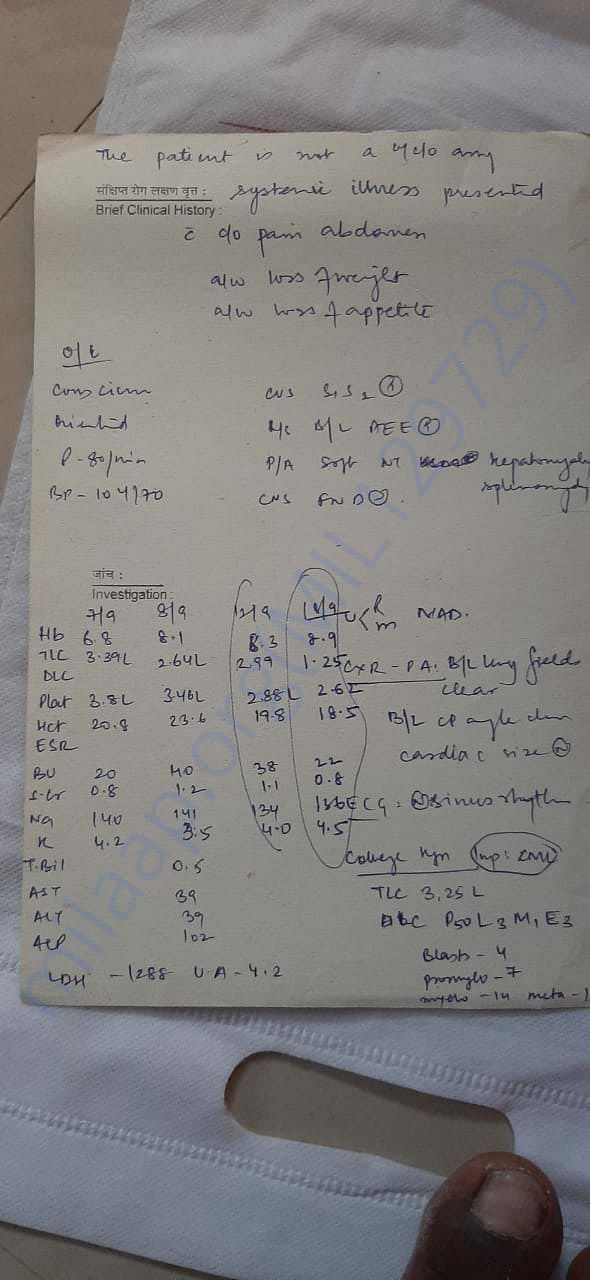 The patient is not a k/c/o any
संक्षिप्त रोग लक्षण वृत्त :
Brief Clinical History :
systemic illness presented
c̄ c/o pain abdomen
a/w loss of weight
a/w loss of appetite
O/E
Conscious CVS S1S2
Oriented R/S B/L AEE
P - 80/min P/A Soft NT hepatomegaly
splenomegaly
BP - 104/70 CNS FND
जांच :
Investigation :
7/9 8/9 12/9 R M NAD.
Hb 6.8 8.1 8.3 8.9
TLC 3.39L 2.64L 2.99 1.25 CXR - PA: B/L lung fields
clear
DLC
Plat 3.8L 3.46L 2.88L 2.6L
Hct 20.8 23.6 19.8 18.5 B/L CP angle clear
ESR
cardiac size
BU 20 40 38 22
S.Cr 0.8 1.2 1.1 0.8
Na 140 141 134 136 ECG = sinus rhythm
K 4.2 3.5 4.0 4.5
T.Bil 0.5
(Imp: CML)
AST 39 TLC 3,25 L
ALT 39 DLC P50 L3 M1 E3
ALP 102
Blasts - 4
LDH - 1288 U.A - 4.2 promyelo - 7
myelo - 14 meta - 1
milaap.org(MIL1129729)